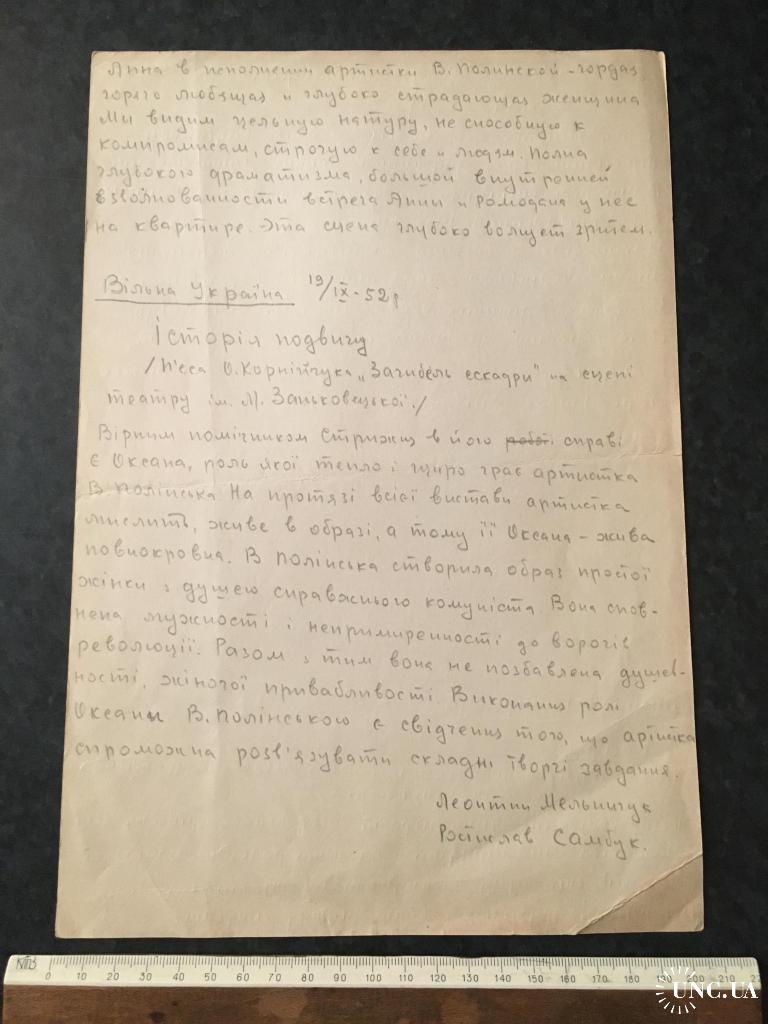 Анна в исполнении артистки В. Полинской - гордая
горячо любящая и глубоко страдающая женщина
Мы видим цельную натуру, не способную к
компромисам, строгую к себе и людям. Полна
глубокого драматизма, большой внутренней
взволнованности встреча Анны и Ромодана у нее
на квартире. Эта сцена глубоко волнует зрителя.
Вільна Україна 19/IX - 52 р
Історія подвигу
/П'єса О. Корнійчука „Загибель ескадри" на сцені
театру ім. М. Заньковецької./
Вірним помічником Стрижня в його роботі справі
є Оксана, роль якої тепло і щиро грає артистка
В Полінська На протязі всієї вистави артистка
мислить, живе в образі, а тому її Оксана - жива
повнокровна. В Полінська створила образ простої
жінки з душею справжнього комуніста. Вона спов-
нена мужності і непримиренності до ворогів
революції. Разом з тим вона не позбавлена душев-
ності, жіночої привабливості. Виконання ролі
Оксани В. Полінською є свідченням того, що артистка
спроможна розв'язувати складні творчі завдання.
Леонтин Мельничук
Ростислав Самбук.
0 10 20 30 40 50 60 70 80 90 100 110 120 130 140 150 160 170 180 190 200 210 220
UNC.UA